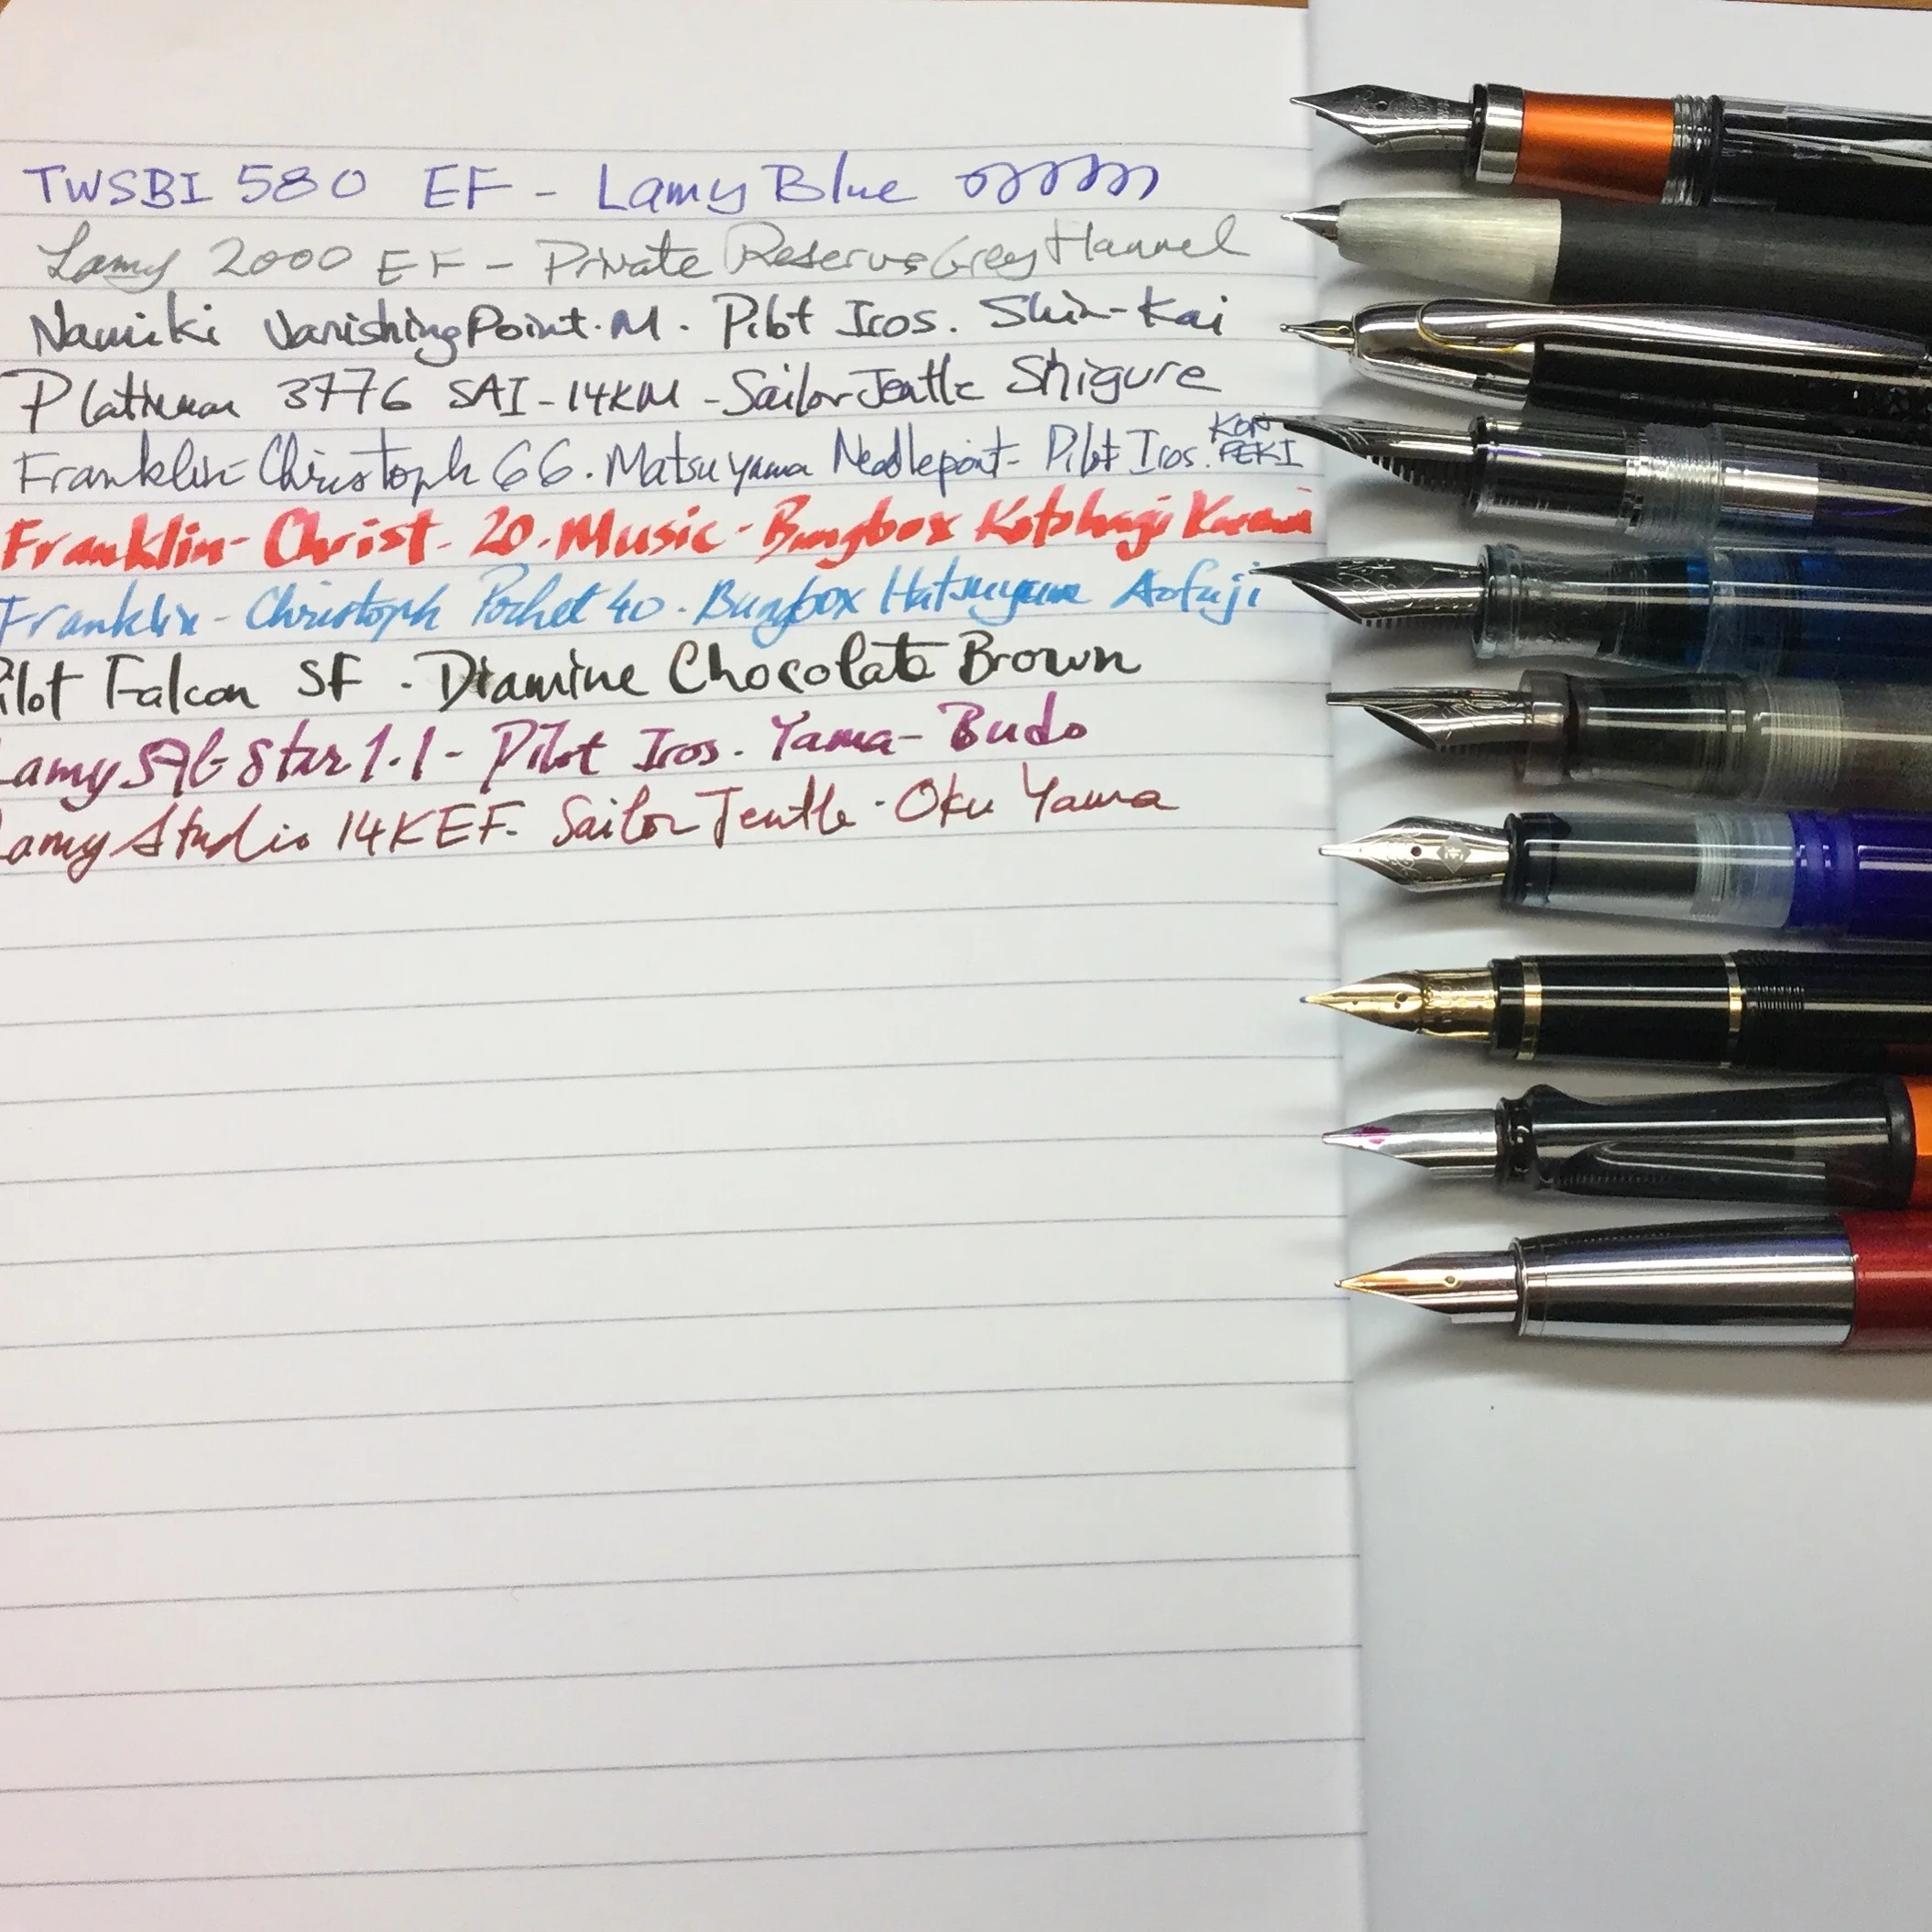 TWSBI 580 EF - Lamy Blue
Lamy 2000 EF - Private Reserve Grey Flannel
Namiki Vanishing Point. M. Pilot Iros. Shin-Kai
Platinum 3776 SAI - 14KM - Sailor Jentle Shigure
Franklin-Christoph 66. Matsuyama Needlepoint - Pilot Iros. KON PEKI
Franklin-Christ. 20. Music - Bungbox Kotobagi
Franklin-Christoph Pocket 40. Bungbox Hatsuyume Aofuji
ilot Falcon SF. Diamine Chocolate Brown
Lamy Star 1.1 - Pilot Iros. Yama-Budo
Lamy Studio 14K EF. Sailor Jentle - Oku Yama